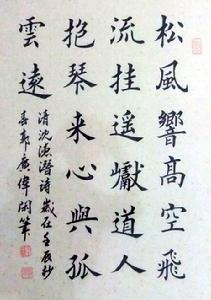 松風響高空飛
流挂遥巘道人
抱琴来心與孤
雲遠
清沈德潛詩歲在壬辰杪
春郭廣偉閑筆